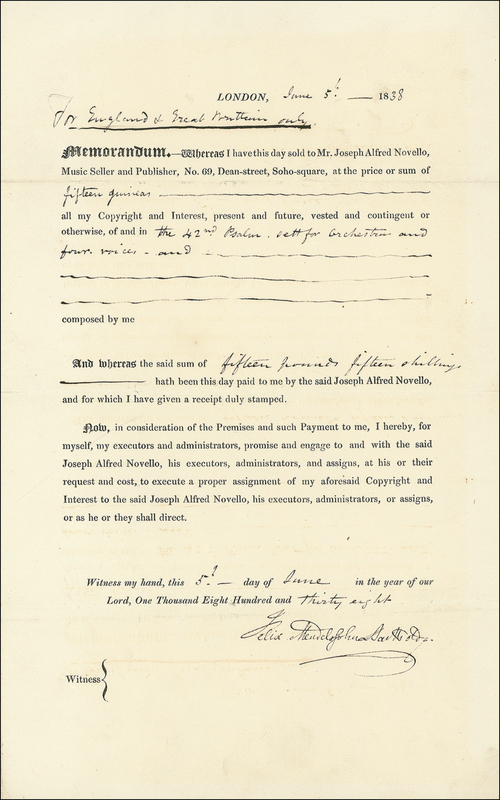 LONDON, June 5th 1838
For England & Great Brittain only.
Memorandum.—Whereas I have this day sold to Mr. Joseph Alfred Novello,
Music Seller and Publisher, No. 69, Dean-street, Soho-square, at the price or sum of
fifteen guineas
all my Copyright and Interest, present and future, vested and contingent or
otherwise, of and in the 42nd Psalm. sett for Orchestra and
four. voices - and
composed by me
And whereas the said sum of fifteen pounds fifteen shillings
hath been this day paid to me by the said Joseph Alfred Novello,
and for which I have given a receipt duly stamped.
Now, in consideration of the Premises and such Payment to me, I hereby, for
myself, my executors and administrators, promise and engage to and with the said
Joseph Alfred Novello, his executors, administrators, and assigns, at his or their
request and cost, to execute a proper assignment of my aforesaid Copyright and
Interest to the said Joseph Alfred Novello, his executors, administrators, or assigns,
or as he or they shall direct.
Witness my hand, this 5th day of June in the year of our
Lord, One Thousand Eight Hundred and thirty eight
Felix Mendelssohn Bartholdy
Witness